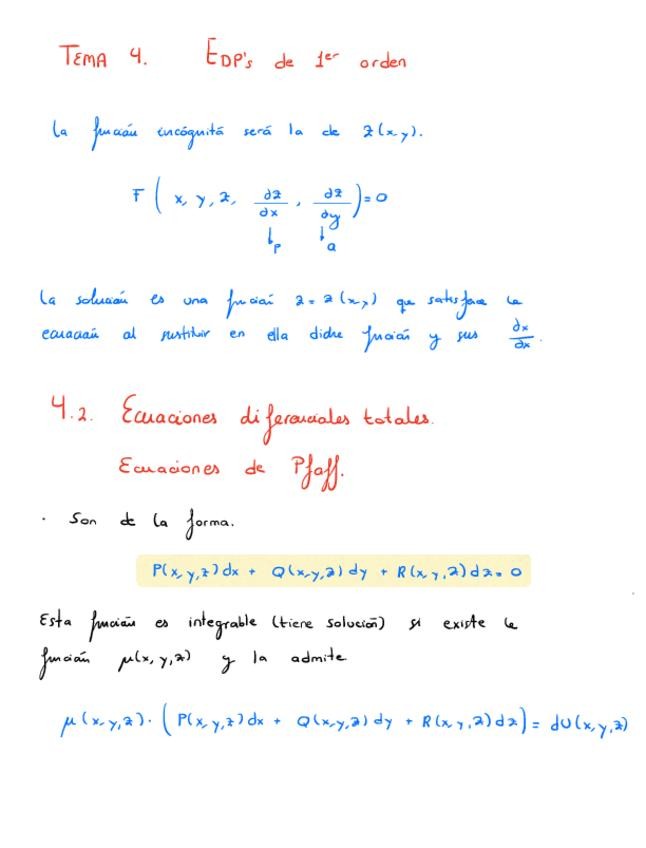 TEMA 4. EDP's de 1er orden
La función incógnita será la de z(x,y).
F ( x, y, z, ∂z/∂x, ∂z/∂y ) = 0
↓p ↓q
La solución es una función z = z(x,y) que satisface la
ecuación al sustituir en ella dicha función y sus ∂x/∂x.
4.2. Ecuaciones diferenciales totales.
Ecuaciones de Pfaff.
· Son de la forma.
P(x,y,z)dx + Q(x,y,z)dy + R(x,y,z)dz = 0
Esta función es integrable (tiene solución) si existe la
función μ(x,y,z) y la admite
μ(x,y,z) · ( P(x,y,z)dx + Q(x,y,z)dy + R(x,y,z)dz ) = dU(x,y,z)